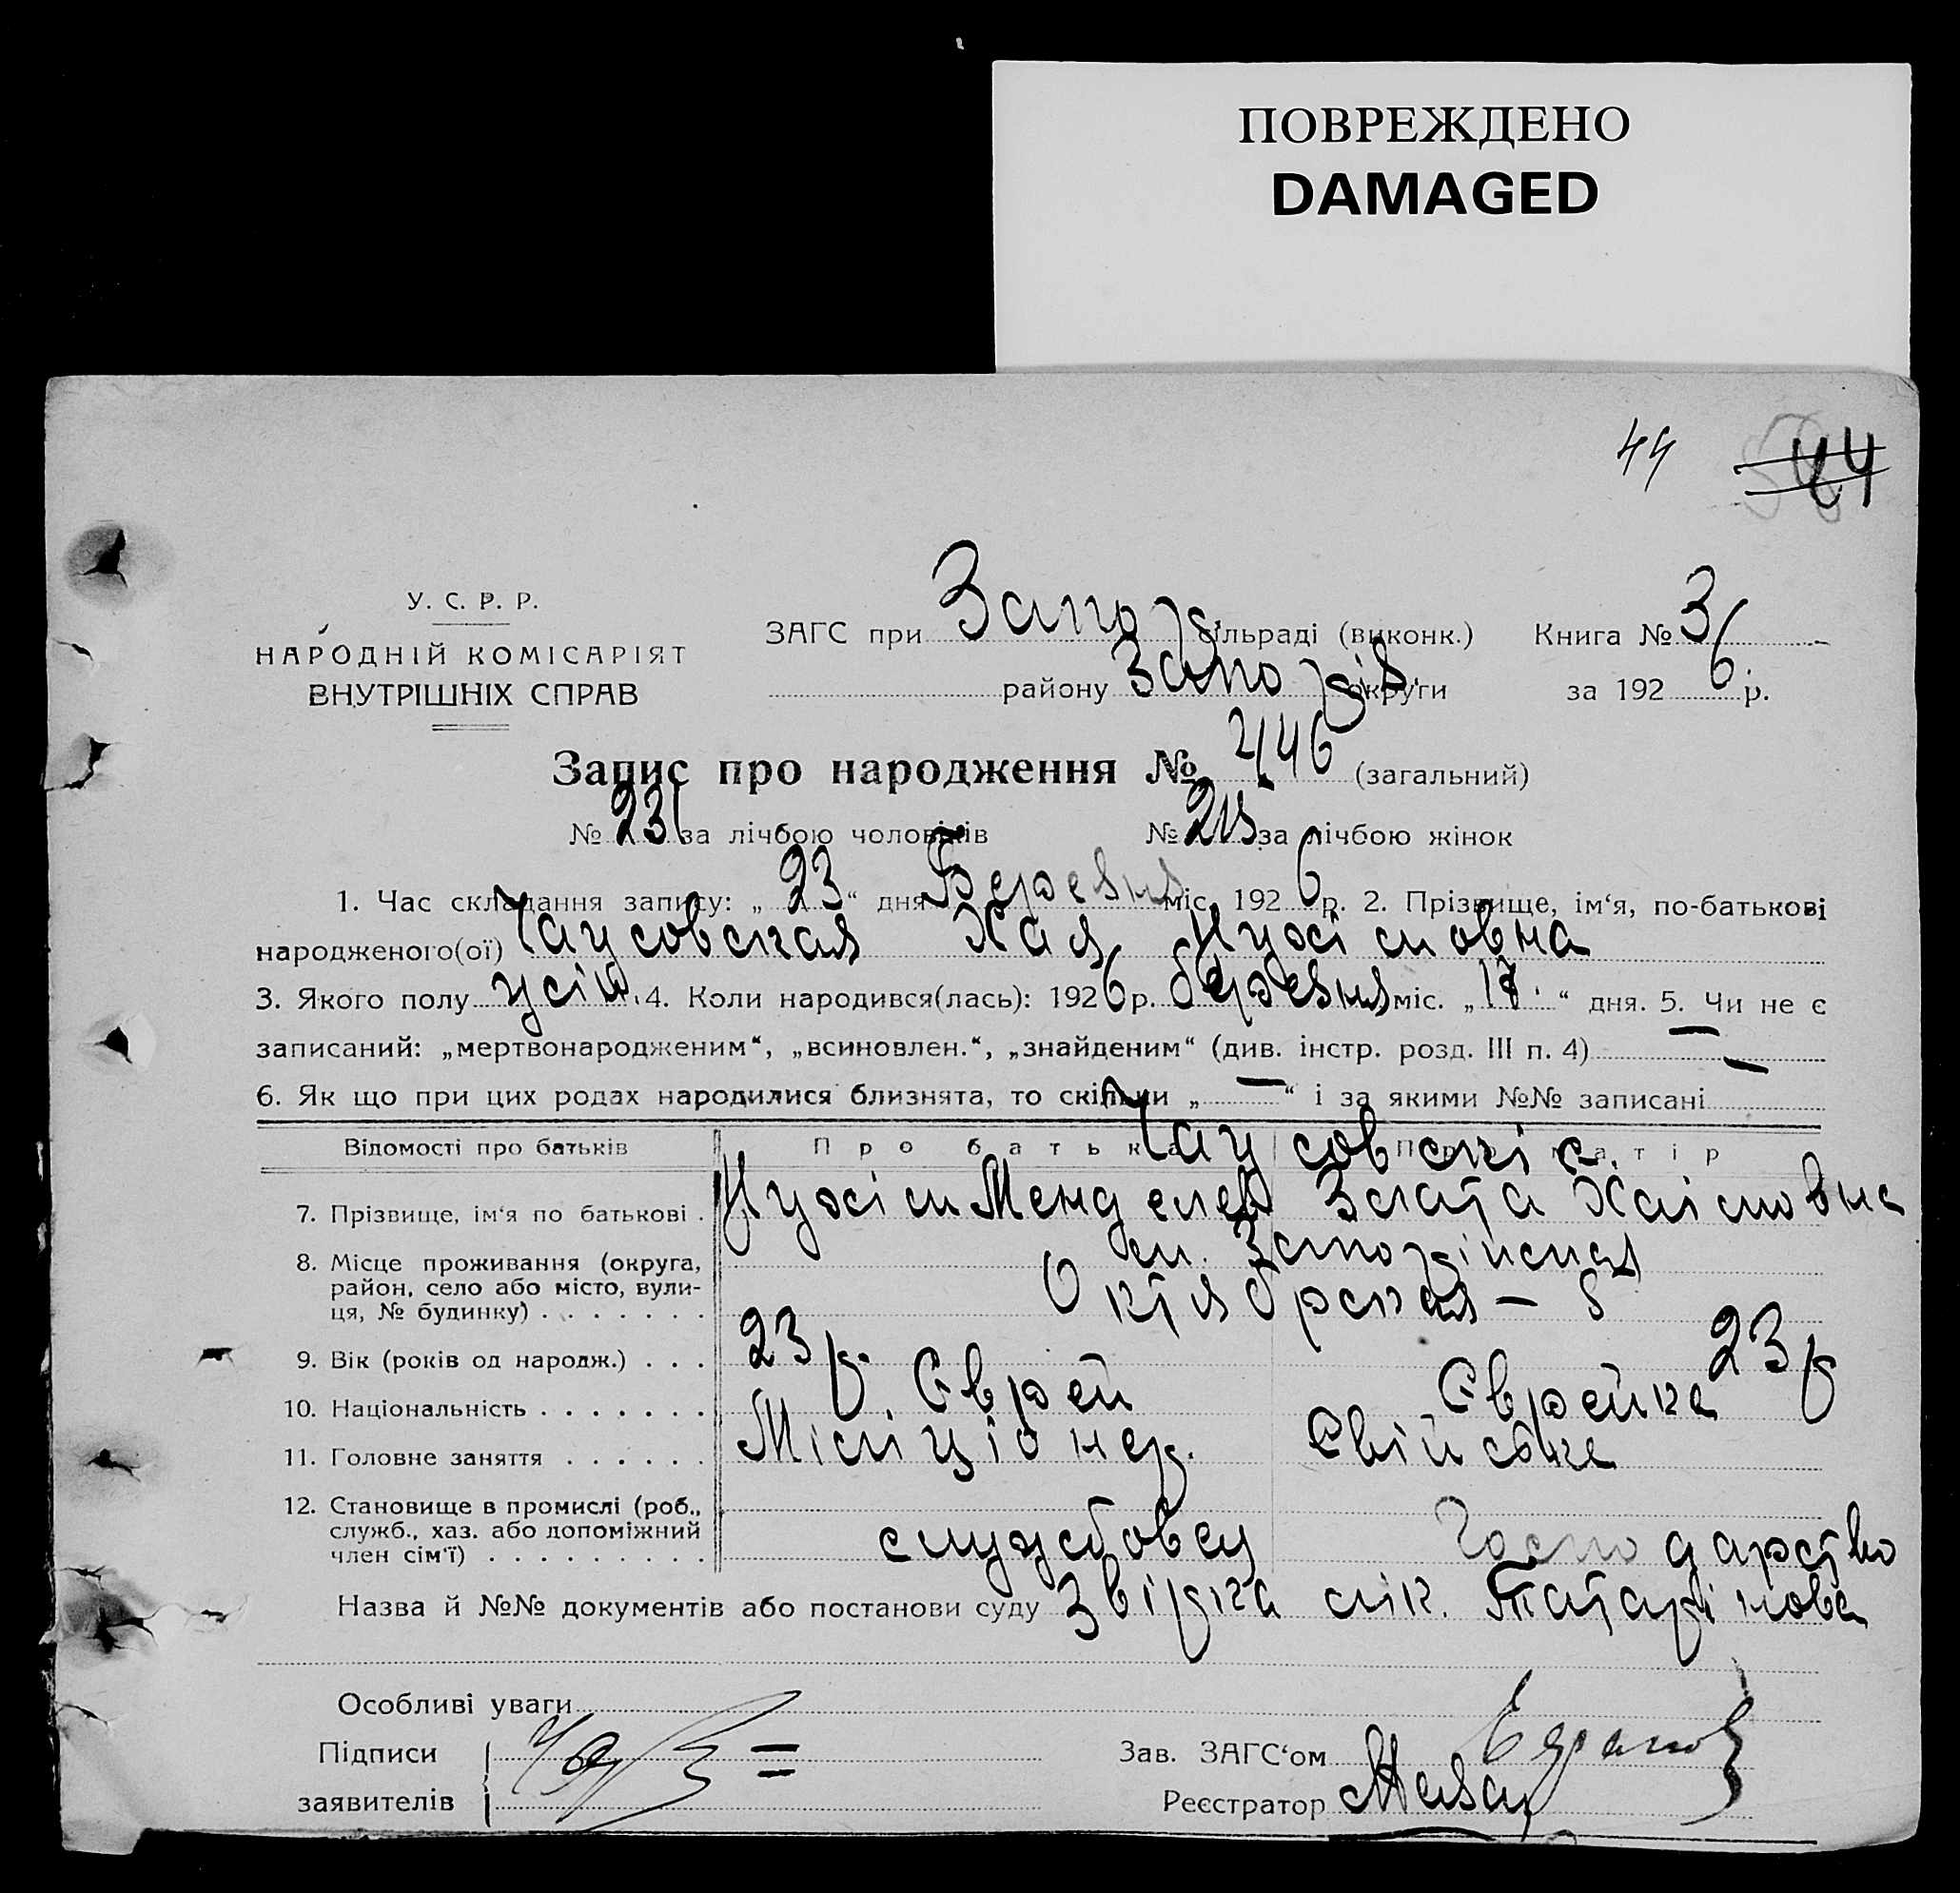 ПОВРЕЖДЕНО
DAMAGED
44 44
У. С. Р. Р.
НАРОДНІЙ КОМІСАРІЯТ
ВНУТРІШНІХ СПРАВ
ЗАГС при Запор. сільраді (виконк.) Книга № 3
району Запоріз. округи за 192 6 р.
Запис про народження № 446 (загальний)
№ 231 за лічбою чоловіків № 215 за лічбою жінок
1. Час складання запису: „ 23 “ дня Березня міс. 192 6 р. 2. Прізвище, ім‘я, по-батькові
народженого(ої) Чаусовская Хая Нухімовна
3. Якого полу 4. Коли народився(лась): 192 6 р. березня міс. „ 17. “ дня. 5. Чи не є
записаний: „мертвонародженим“, „всиновлен.“, „знайденим“ (див. інстр. розд. III п. 4) —
6. Як що при цих родах народилися близнята, то скільки „ — “ і за якими №№ записані —
Відомості про батьків Про батька Про матір
Чаусовскіє
7. Прізвище, ім‘я по батькові . Нухім Менделев Злата Хаімовна
8. Місце проживання (округа, район, село або місто, вули- ця, № будинку) . . . . . . . м.
Октябрская — 8
9. Вік (років од народж.) . . . 23 р. 23 р
10. Національність . . . . . . . Єврей Єврейка
11. Головне заняття . . . . . . Міліціонер. Свійське
12. Становище в промислі (роб., служб., хаз. або допоміжний член сім‘ї) . . . . . . . . . службовец Господарство
Назва й №№ документів або постанови суду лік. Татарінова
Особливі уваги
Підписи
заявителів
Зав. ЗАГС‘ом
Реєстратор